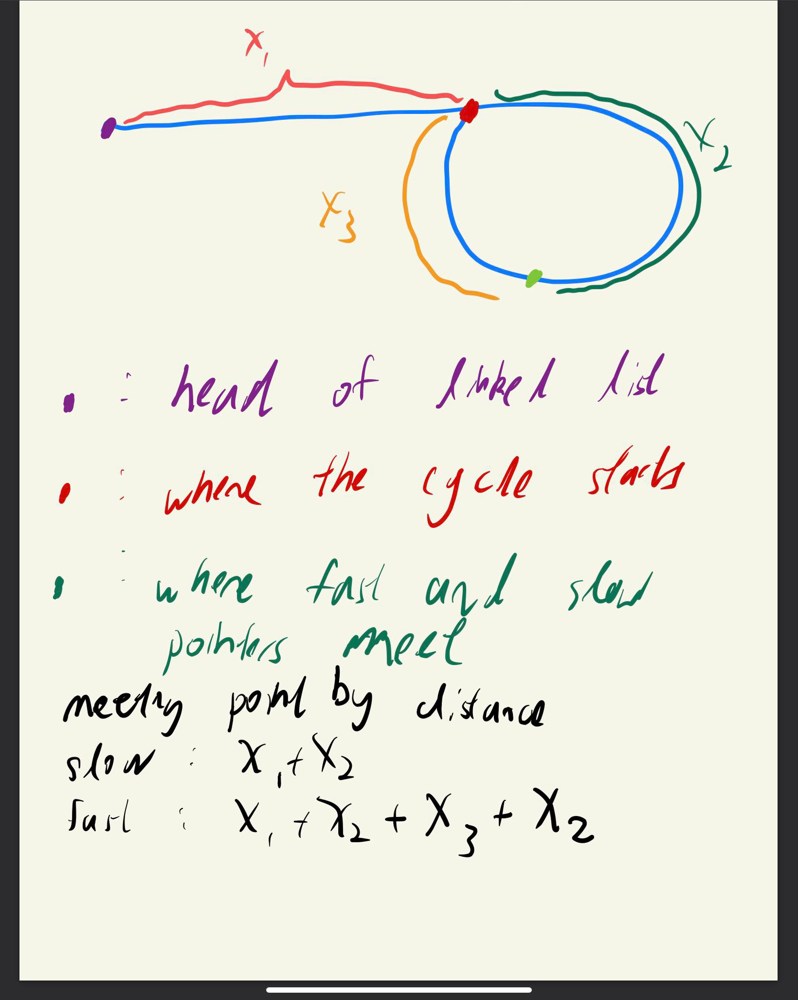 X₁
X₂
X₃
: head of linked list
: where the cycle starts
: where fast and slow
pointers meet
meeting point by distance
slow : X₁ + X₂
fast : X₁ + X₂ + X₃ + X₂